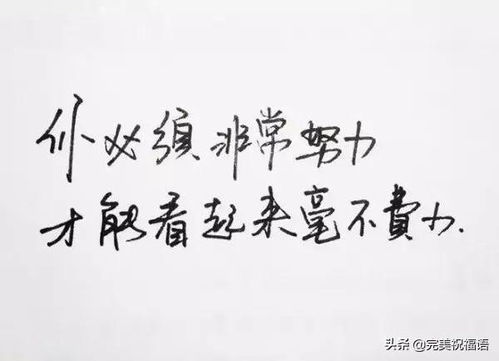 你必須非常努力
才能看起来毫不費力.
头条 @完美祝福语